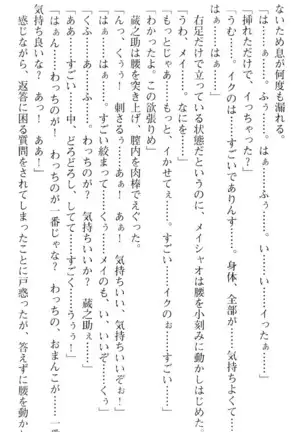 ないため息が何度も漏れる。
「は……ぁ……。ふぅ……。はぁ……ふぅ……。い……い……イッたぁ……」
「挿れただけで、イっちゃった？」
「うむ……。イクのは……すごいでありんす……。身体、全部が……気持ちよくて……」
右足だけで立っている状態だというのに、メイシャオは腰を小刻みに動かしはじめた。
「うわ、メイ……。なにを……」
「もっとじゃぁ……もっと、イかせてぇ……。すごい……イクのぉ……すごい……」
「わかったよ。この欲張りめ」
蔵之助は腰を突き上げ、膣内を肉棒でえぐった。
「んっ、くぅう！　刺さるぅ……あぁ！　あぁ！　気持ちいい、気持ちいいぞぉ！」
「はぁ……は……。すごい絞まって……くぅ……メイのも、いい、いいぞ……くぅ」
「くふ……あ……ふ……。わっちのが？　気持ちいいか？　蔵之助……」
「ああ……すごい……中、どろどろして……してて……すごく……うぅう！」
「はぁん……わっちのが！　わっちのが一番じゃな？　わっちの、おまんこが……一番
気持ち良いな？　あっ！　あぁ！」
感じながら、返答に困る質問をされてしまったことに戸惑ったが、答えずに腰を動か